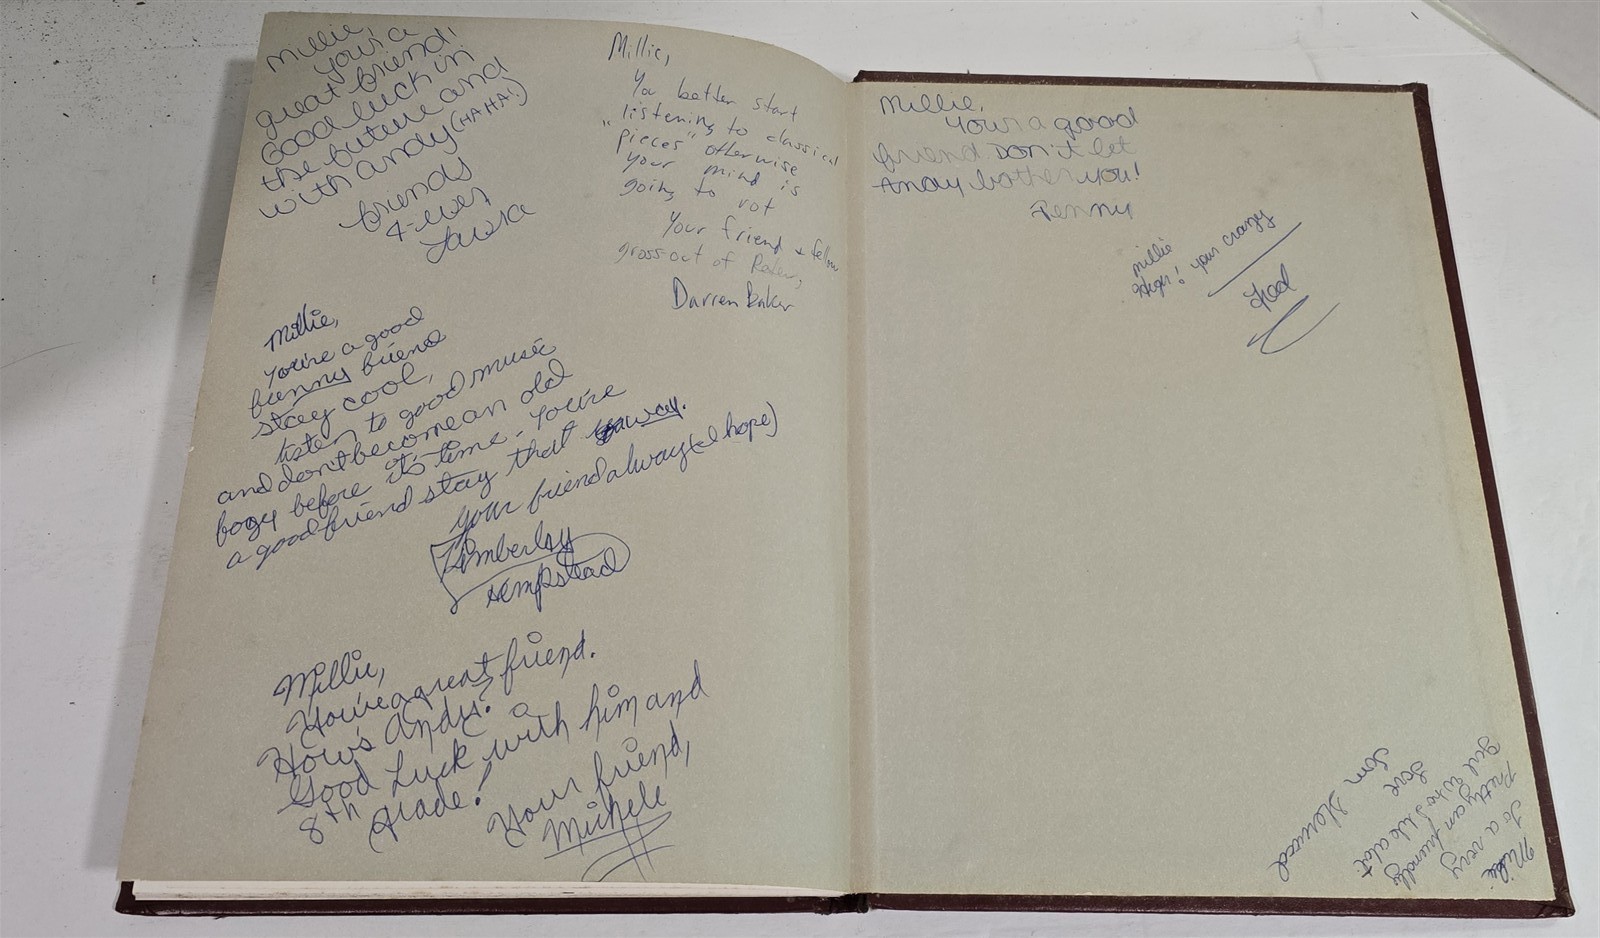 Millie,
your a
great friend!
Good luck in
the future and
with andy (HA HA!)
friends
4-ever
Laura
Millie,
You better start
listening to classical
"pieces" otherwise
your mind is
going to rot
Your friend & fellow
gross-out of
Darren Baker
Millie,
you're a good
funny friend
stay cool,
listen to good music
and don't become an old
fogy before it's time. You're
a good friend stay that way.
Your friend always (I hope)
Kimberley
Hempstead
Millie,
You're a great friend.
How's Andy?
Good Luck with him and
8th grade!
Your friend,
Michele
Millie,
Your a good
friend Don't let
Andy bother you!
Jenny
Millie
your crazy
Millie
To a very
Pretty and friendly
girl who I
Love